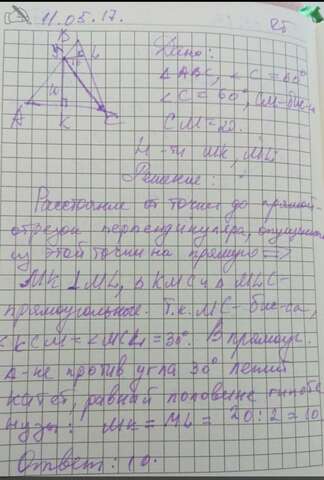 11.05.17.
25
B
M
L
10
10
A
K
C
Дано:
△ABC, ∠C = 60°
∠C = 60°, CM-бис-са
CM = 20.
Н-ти MK, ML
Решение:
Расстояние от точки до прямой-
отрезок перпендикуляра, опущенного
из этой точки на прямую =>
MK ⊥ ML, △ KMC и △ MLC-
прямоугольные. Т.к. MC- бис-са,
∠KCM = ∠MCL = 30°. В прямоуг.
△-ке против угла 30° лежит
катет, равный половине гипоте
нузы: MK = ML = 20:2 = 10
Ответ: 10.